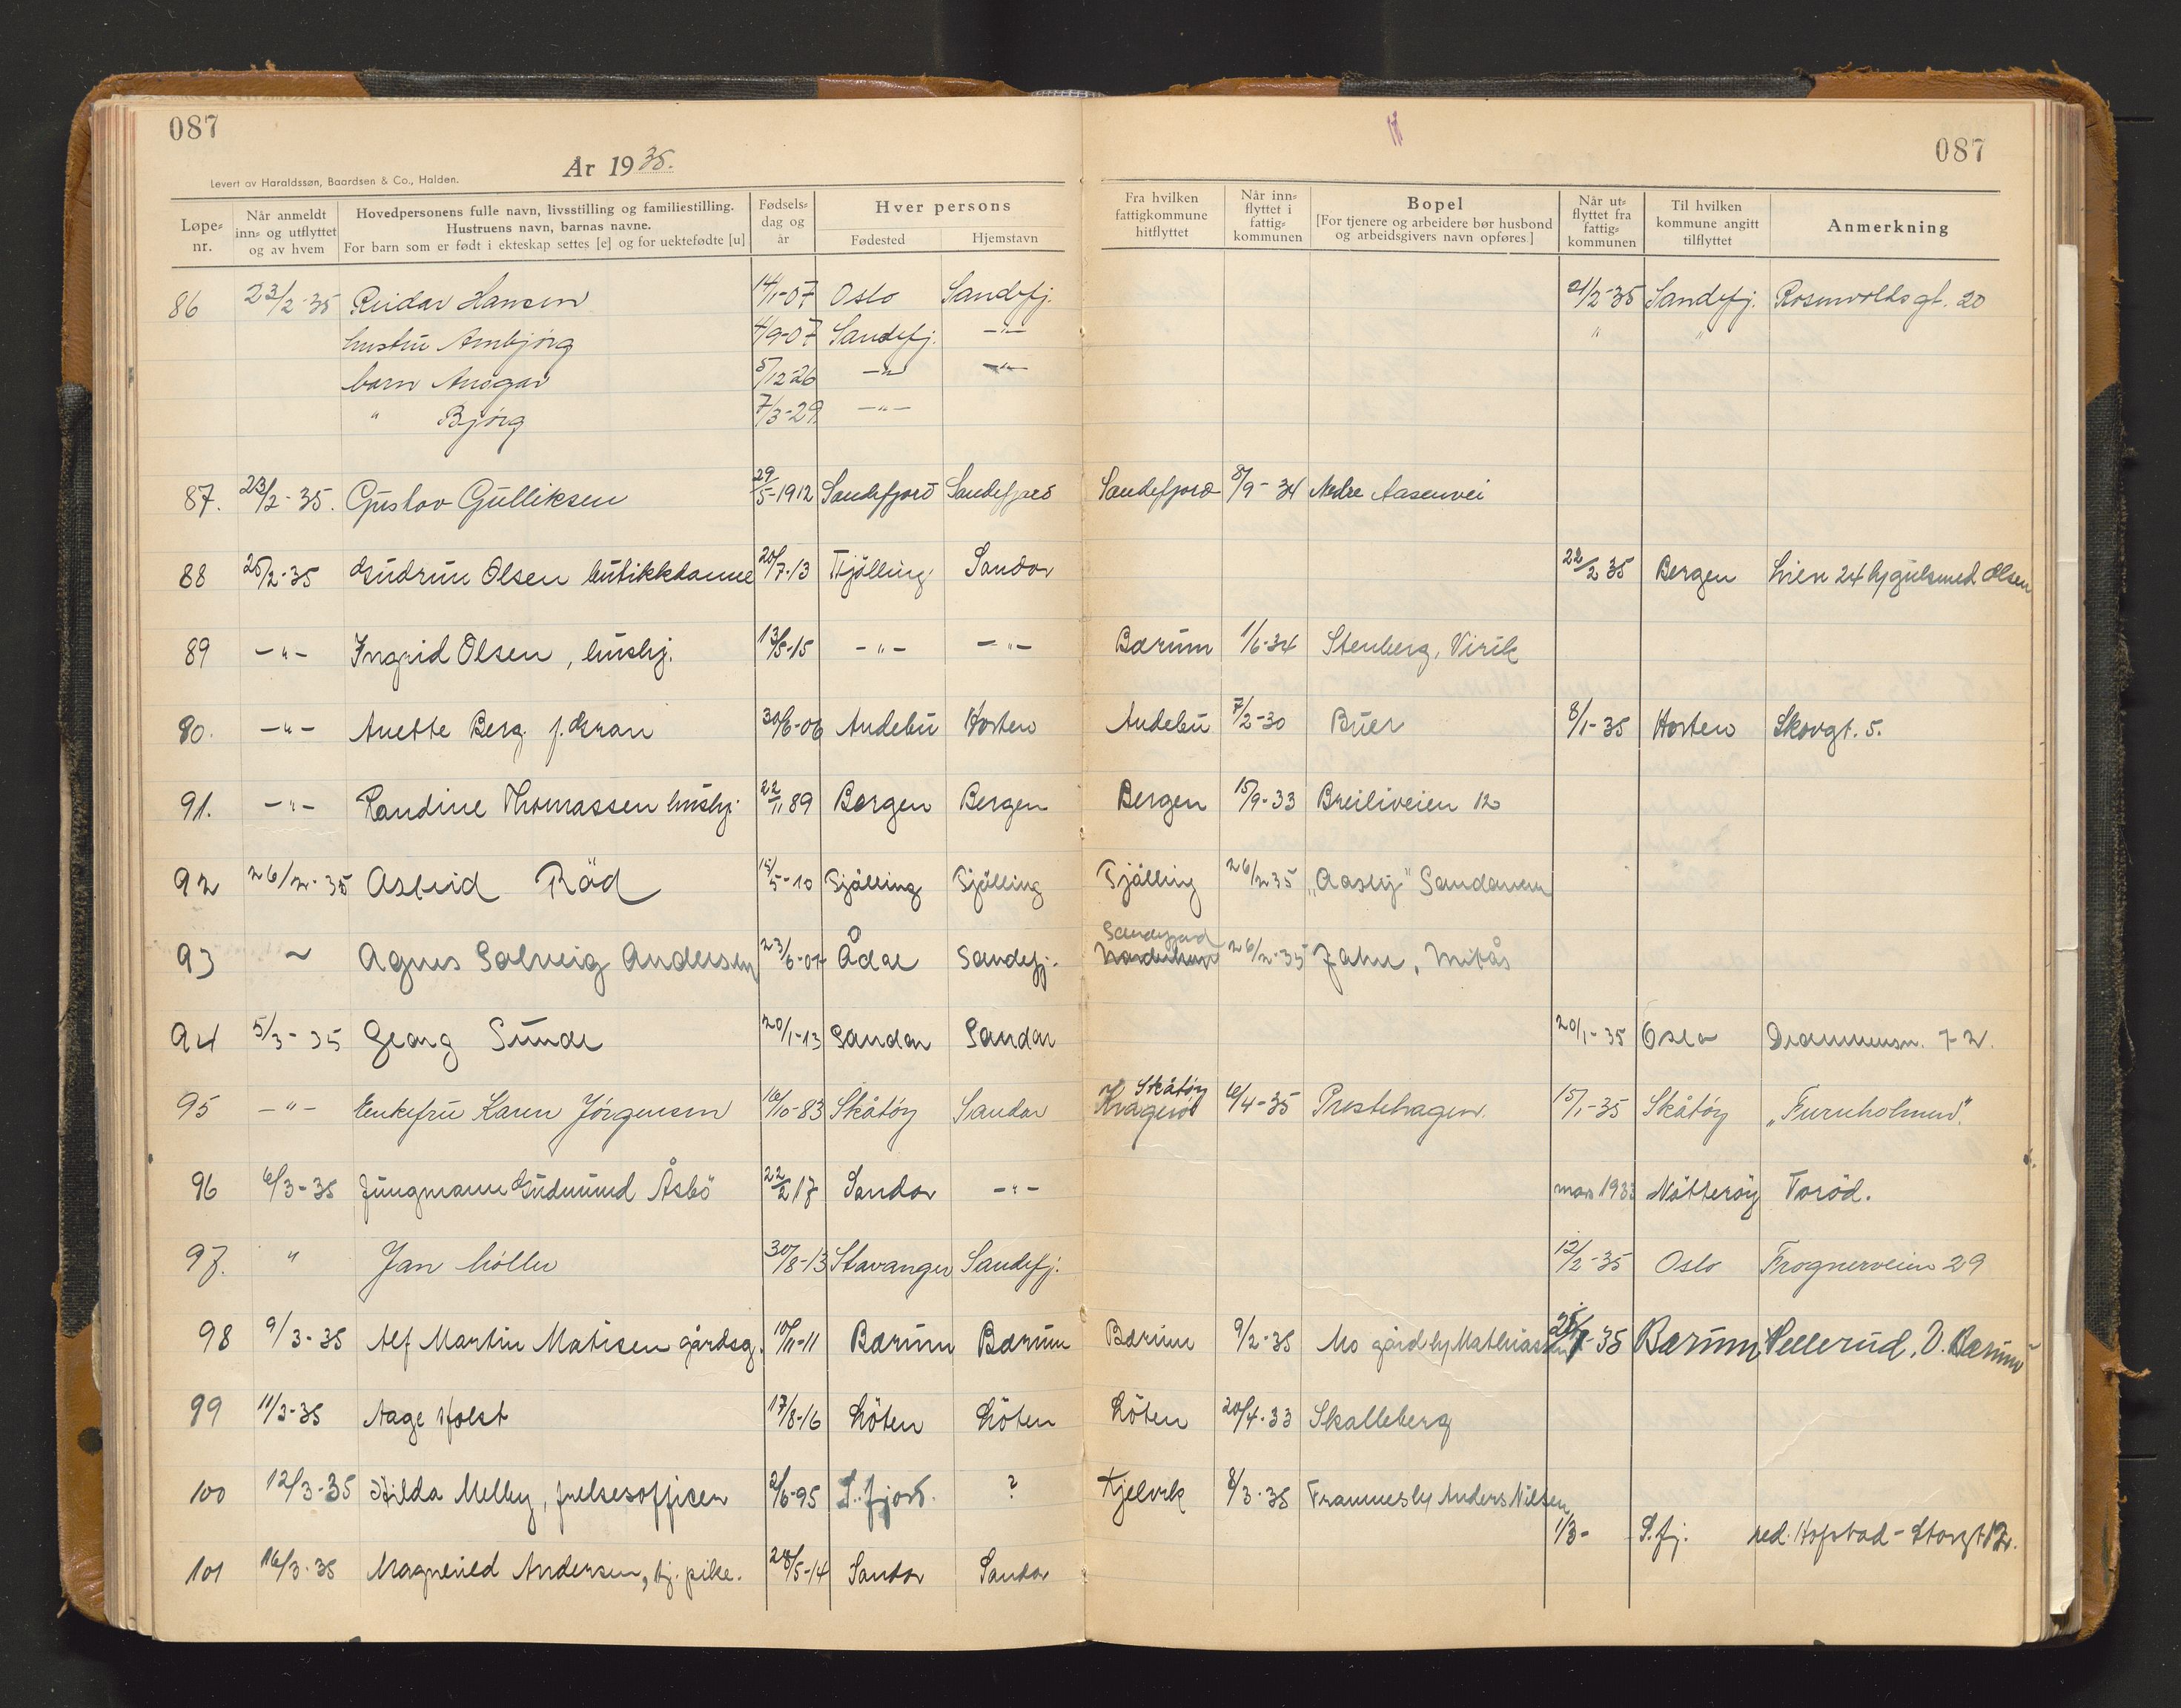 087
087
År 1935.
Levert av Haraldssøn, Baardsen & Co., Halden.
Løpe-nr. Når anmeldt inn- og utflyttet og av hvem Hovedpersonens fulle navn, livsstilling og familiestilling. Hustruens navn, barnas navne. For barn som er født i ekteskap settes [e] og for uektefødte [u] Fødsels-dag og år Hver persons Fødested Hjemstavn Fra hvilken fattigkommune hitflyttet Når inn-flyttet i fattig-kommunen Bopel [For tjenere og arbeidere bør husbond og arbeidsgivers navn opføres] Når ut-flyttet fra fattig-kommunen Til hvilken kommune angitt tilflyttet Anmerkning
86 23/2-35 Reidar Hansen 14/1-07 Oslo Sandefj. 21/2-35 Sandefj. Rosenvoldsgt. 20
hustru Arnbjörg 4/9-07 Sandefj. -"- " "
barn Ansgar 5/12-26 -"- -"-
" Bjórg 7/3-29 -"-
87. 23/2-35. Gustav Gulliksen 29/5-1912 Sandefjord Sandefjord Sandefjord 8/9-34 Nedre Aasenvei
88 25/2-35 Gudrun Olsen butikkdame 20/7-13 Tjölling Sandar 22/2 35 Bergen Lien 24 hj gulsmed Olsen
89 -"- Ingrid Olsen, hushj. 13/8-15 -"- -"- Bærum 1/6-34 Stenberg, Virik
90. -"- Anette Berg f. Gran 30/6-06 Andebu Horten Andebu 7/2-30 Buer 8/1-35 Horten Skovgt. 5.
91. -"- Randine Thomassen hushj. 22/11 89 Bergen Bergen Bergen 15/9-33 Breiliveien 12
92 26/2-35 Astrid Röd 15/5-10 Tjölling Tjölling Tjölling 26/2 35 "Aasly" Sandanen
93 ~ Agnes Solveig Andersen 23/6-07 Ådal Sandefj. Sandefjord Norderhov 26/2-35 Jahre, Mitås
94 5/3-35 Georg Sunde 20/1-13 Sandar Sandar 20/1-35 Oslo Drammensv. 72.
95 -"- Enkefru Karen Jórgensen 16/10-83 Skåtöy Sandar Skåtöy Kragerö 6/4-35 Prestehagen. 15/1-35 Skåtöy "Furuholmen".
96 6/3-35 Jungmann Gudmund Åsbö 22/2 17 Sandar -"- mars 1933 Nötteröy Torød.
97. " Jan Möller 30/8-13 Stavanger Sandefj. 12/2-35 Oslo Frognerveien 29
98 9/3-35 Alf Martin Matisen gårdsg. 10/11-11 Bærum Bærum Bærum 9/2-35 Mo gård hj Mathiassen 25/7-35 Bærum Hellerud, V. Bærum
99 11/3-35 Aage Holst 17/8-16 Löten Löten Löten 20/4-33 Skalleberg
100 12/3-35 Hilda Melby, frelsesofficer 2/6-95 S.fjord. ? Kjelvik 8/3-35 Framnes hj Anders Nilsen
1/3- S.fj. red. Hofstad - Storgt 12.
101 16/3-35 Magnhild Andersen, tj. pike. 28/5-14 Sandar Sandar